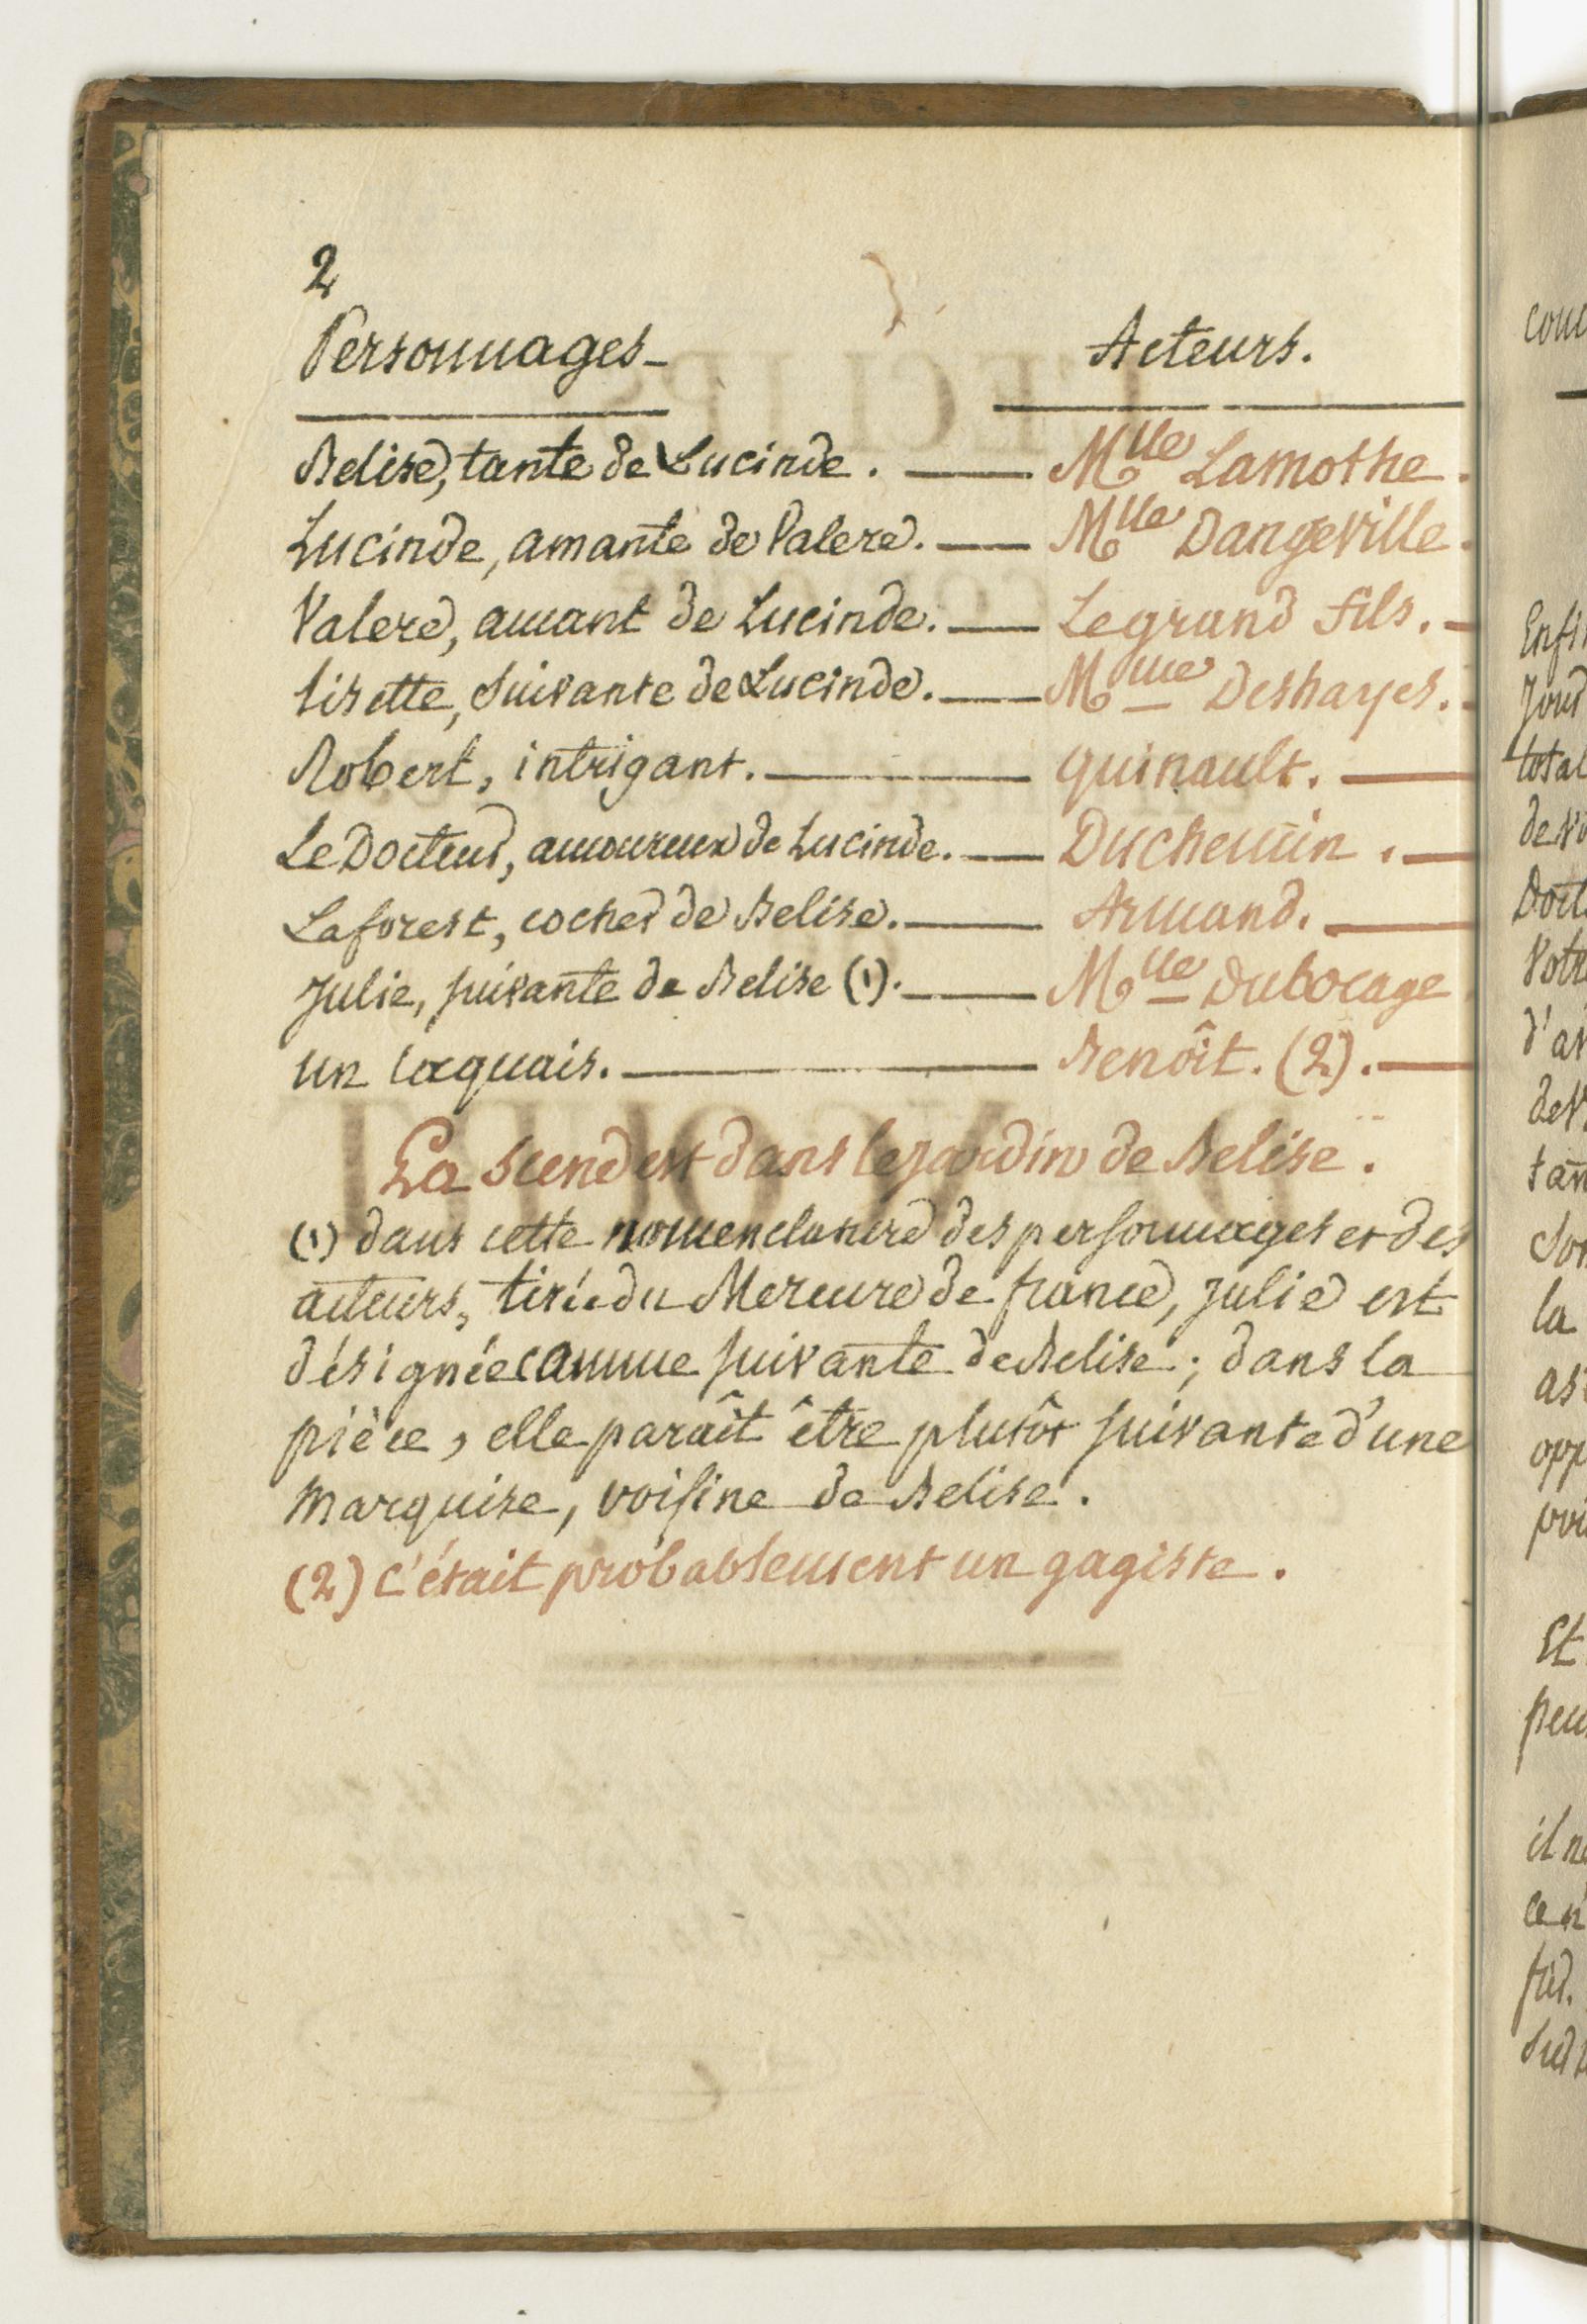 2
Personnages_ Acteurs.
Belise, tante de Lucinde. — Mlle Lamothe.
Lucinde, amante de Valere. — Mlle Dangeville.
Valere, amant de Lucinde. — Legrand fils. —
Lisette, suivante de Lucinde. — Mme Deshayes. —
Robert, intrigant. — Quinault. —
Le Docteur, amoureux de Lucinde. — Duchemin. —
Laforest, cocher de Belise. — Armand. —
Julie, suivante de Belise (1). — Mlle Dubocage
un laquais. — Benôit. (2). —
La scene est dans le jardin de Belise.
(1) dans cette nomenclature des personnages et des
acteurs, tirée du Mercure de france, Julie est
désignée comme suivante de Belise; dans la
pièce, elle paraît être plutôt suivante d'une
Marquise, voisine de Belise.
(2) C'était probablement un gagiste.